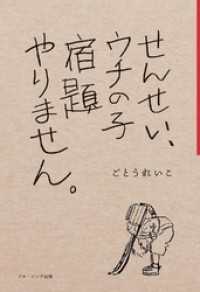 せんせい、
ウチの子
宿題
やりません。
ごとうれいこ